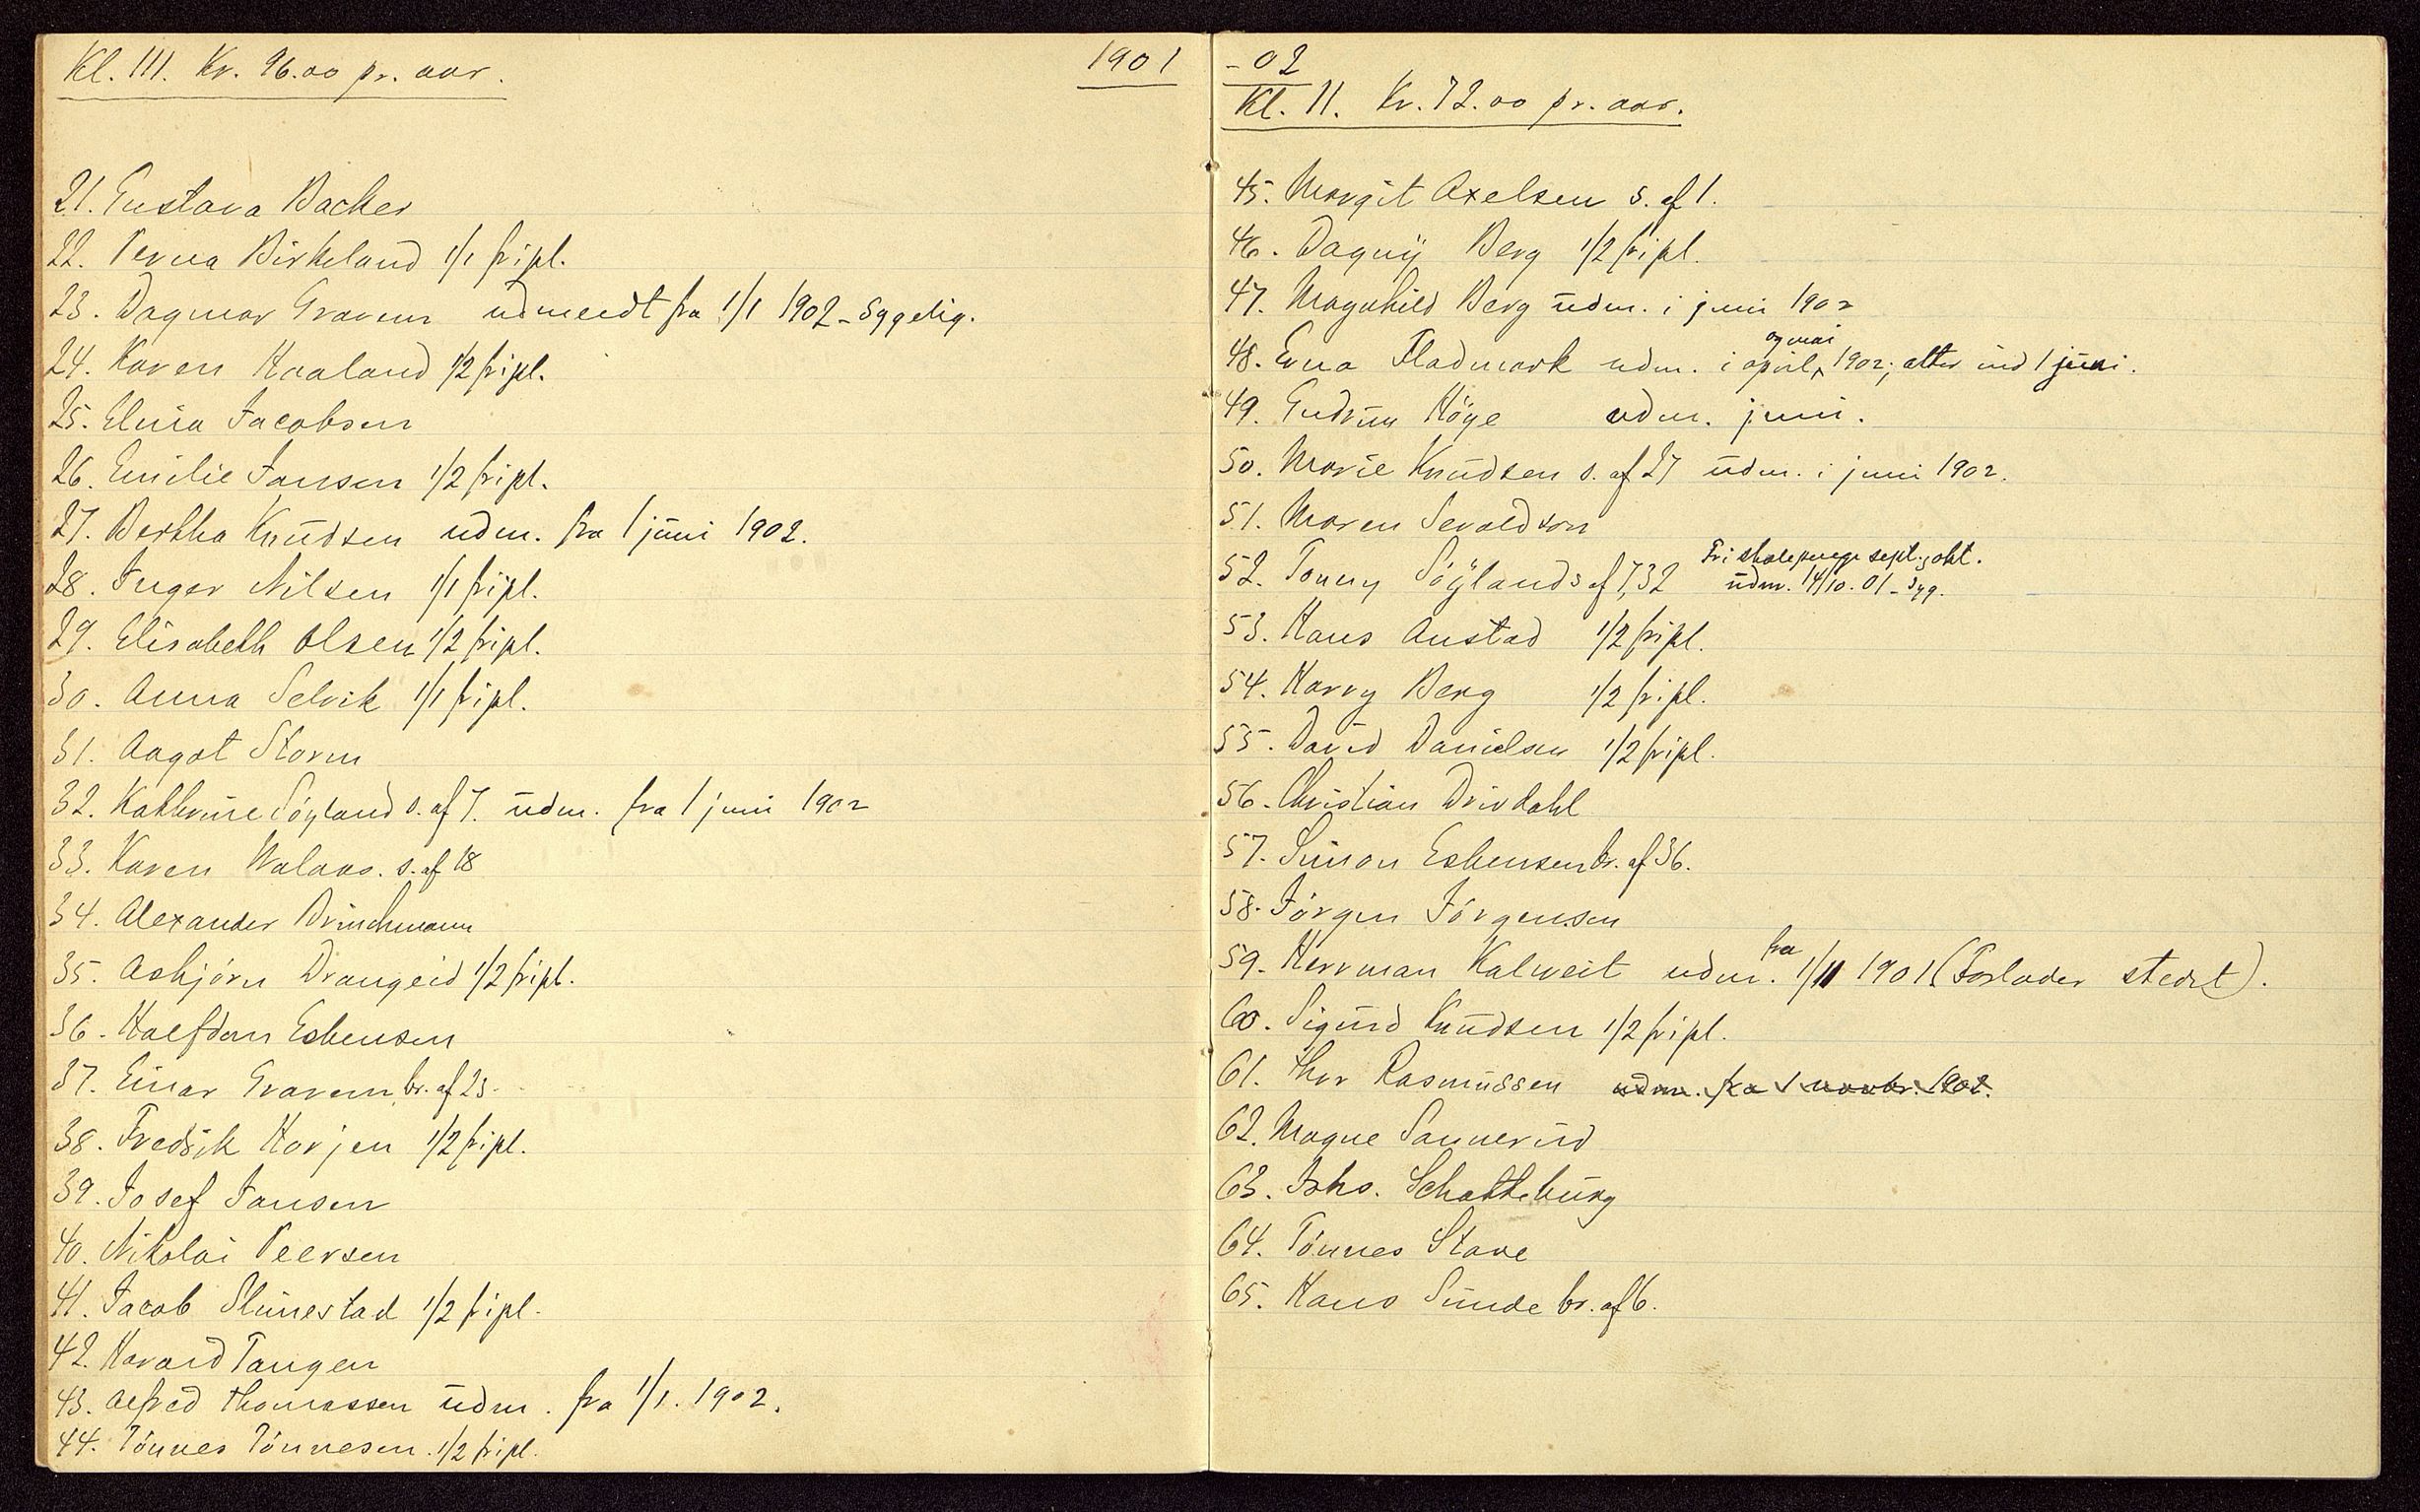 Kl. III. Kr. 96.00 pr. aar.
1901
21. Gustava Backer
22. Perna Birkeland 1/1 fripl.
23. Dagmar Gravem udmeldt fra 1/1 1902 - Sygelig.
24. Karen Haaland 1/2 fripl.
25. Elina Jacobsen
26. Emilie Jansen 1/2 fripl.
27. Bertha Knudsen udm. fra 1 juni 1902.
28. Inger Nilsen 1/1 fripl.
29. Elisabeth Olsen 1/2 fripl.
30. Anna Selvik 1/1 fripl.
31. Aagot Storm
32. Kathrine Söyland s. af 7. udm. fra 1 juni 1902
33. Karen Walaas. s. af 18
34. Alexander Brinchmann
35. Asbjörn Drangeid 1/2 fripl.
36. Halfdan Esbensen
37. Einar Gravem br. af 23.
38. Fredrik Korjen 1/2 fripl.
39. Josef Jansen
40. Nikolai Peersen
41. Jacob Slimestad 1/2 fripl.
42. Havard Tangen
43. Alfred Thomassen udm. fra 1/1. 1902.
44. Tönnes Tönnesen. 1/2 fripl.
- 02
Kl. II. Kr. 72.00 pr. aar.
45. Margit Axelsen s. af 1.
46. Dagny Berg 1/2 fripl.
47. Magnhild Berg udm. i juni 1902
og mai
48. Erna Fladmark udm. i april, 1902; atter ind 1 juni.
49. Gudrun Höye udm. juni.
50. Marie Knudsen s. af 27 udm. i juni 1902.
51. Maren Sevaldson
Fri skolepenge sept. og okt.
52. Tonny Söyland s af 7,32 udm. 14/10. 01 - Syg.
53. Hans Austad 1/2 fripl.
54. Harry Berg 1/2 fripl.
55. David Danielsen 1/2 fripl.
56. Christian Drivdahl
57. Simon Esbensen br. af 36.
58. Jörgen Jörgensen
fra
59. Herrman Kalweit udm. 1/11 1901 (Forlader stedet).
60. Sigurd Knudsen 1/2 fripl.
61. Thor Rasmussen udm. fra 1 novbr. 1902.
62. Magne Sannerud
63. Johs. Schatteburg
64. Tönnes Stave
65. Hans Sunde br. af 6.